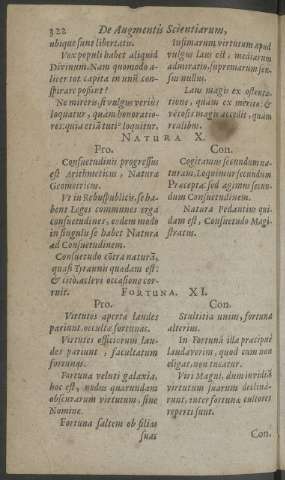 322 De Augmentis Scientiarum,
ubique sunt libertatis.
Vox populi habet aliquid
Divinum. Nam quomodo a-
licer tot capita in unū con-
spirare possint?
Ne miteris, si vulgus veriùs
loquatur, quàm honoratio-
res: quia etiā tutiùs loquitur.
Infimarum virtutum apud
vulgus laus est, mediarum
admiratio, supremarum sen-
sus nullus.
Laus magis ex ostenta-
tione, quàm ex merito: &
vētosis magis accedit, quàm
realibus.
NATURA X.
Pro.
Consuetudinis progressus
est Arithmeticus, Naturæ
Geometricus.
Ut in Rebuspublicis, se ha-
bent Leges communes erga
consuetudines, eodem modo
in singulis se habet Natura
ad Consuetudinem.
Consuetudo cōtra naturā,
quasi Tyrannis quædam est:
& citò, ac levi occasione cor-
ruit.
Con.
Cogitamus secundum na-
turam, Loquimur secundum
Præcepta: sed agimus secun-
dum Consuetudinem.
Natura Pedantius qui-
dam est, Consuetudo Magi-
stratus.
FORTUNA. XI.
Pro.
Virtutes apertæ laudes
pariunt, occultæ fortunas.
Virtutes officiorum lau-
des pariunt; facultatum
fortunas.
Fortuna veluti galaxia,
hoc est, nodus quarundam
obscurarum virtutum, sine
Nomine.
Fortuna saltem ob filias
suas
Con.
Stultitia unius, fortuna
alterius.
In Fortunâ illa præcipuè
laudaverim, quod cum non
eligat, non tueatur.
Viri Magni, dum invidiā
virtutum suarum declina-
runt, inter fortunæ cultores
reperti sunt.
Con.